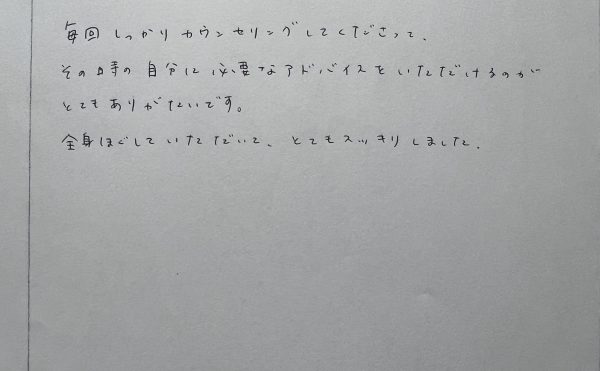 毎回しっかりカウンセリングしてくださって、
その時の自分に必要なアドバイスをいただけるのが
とてもありがたいです。
全身ほぐしていただいて、とてもスッキリしました。